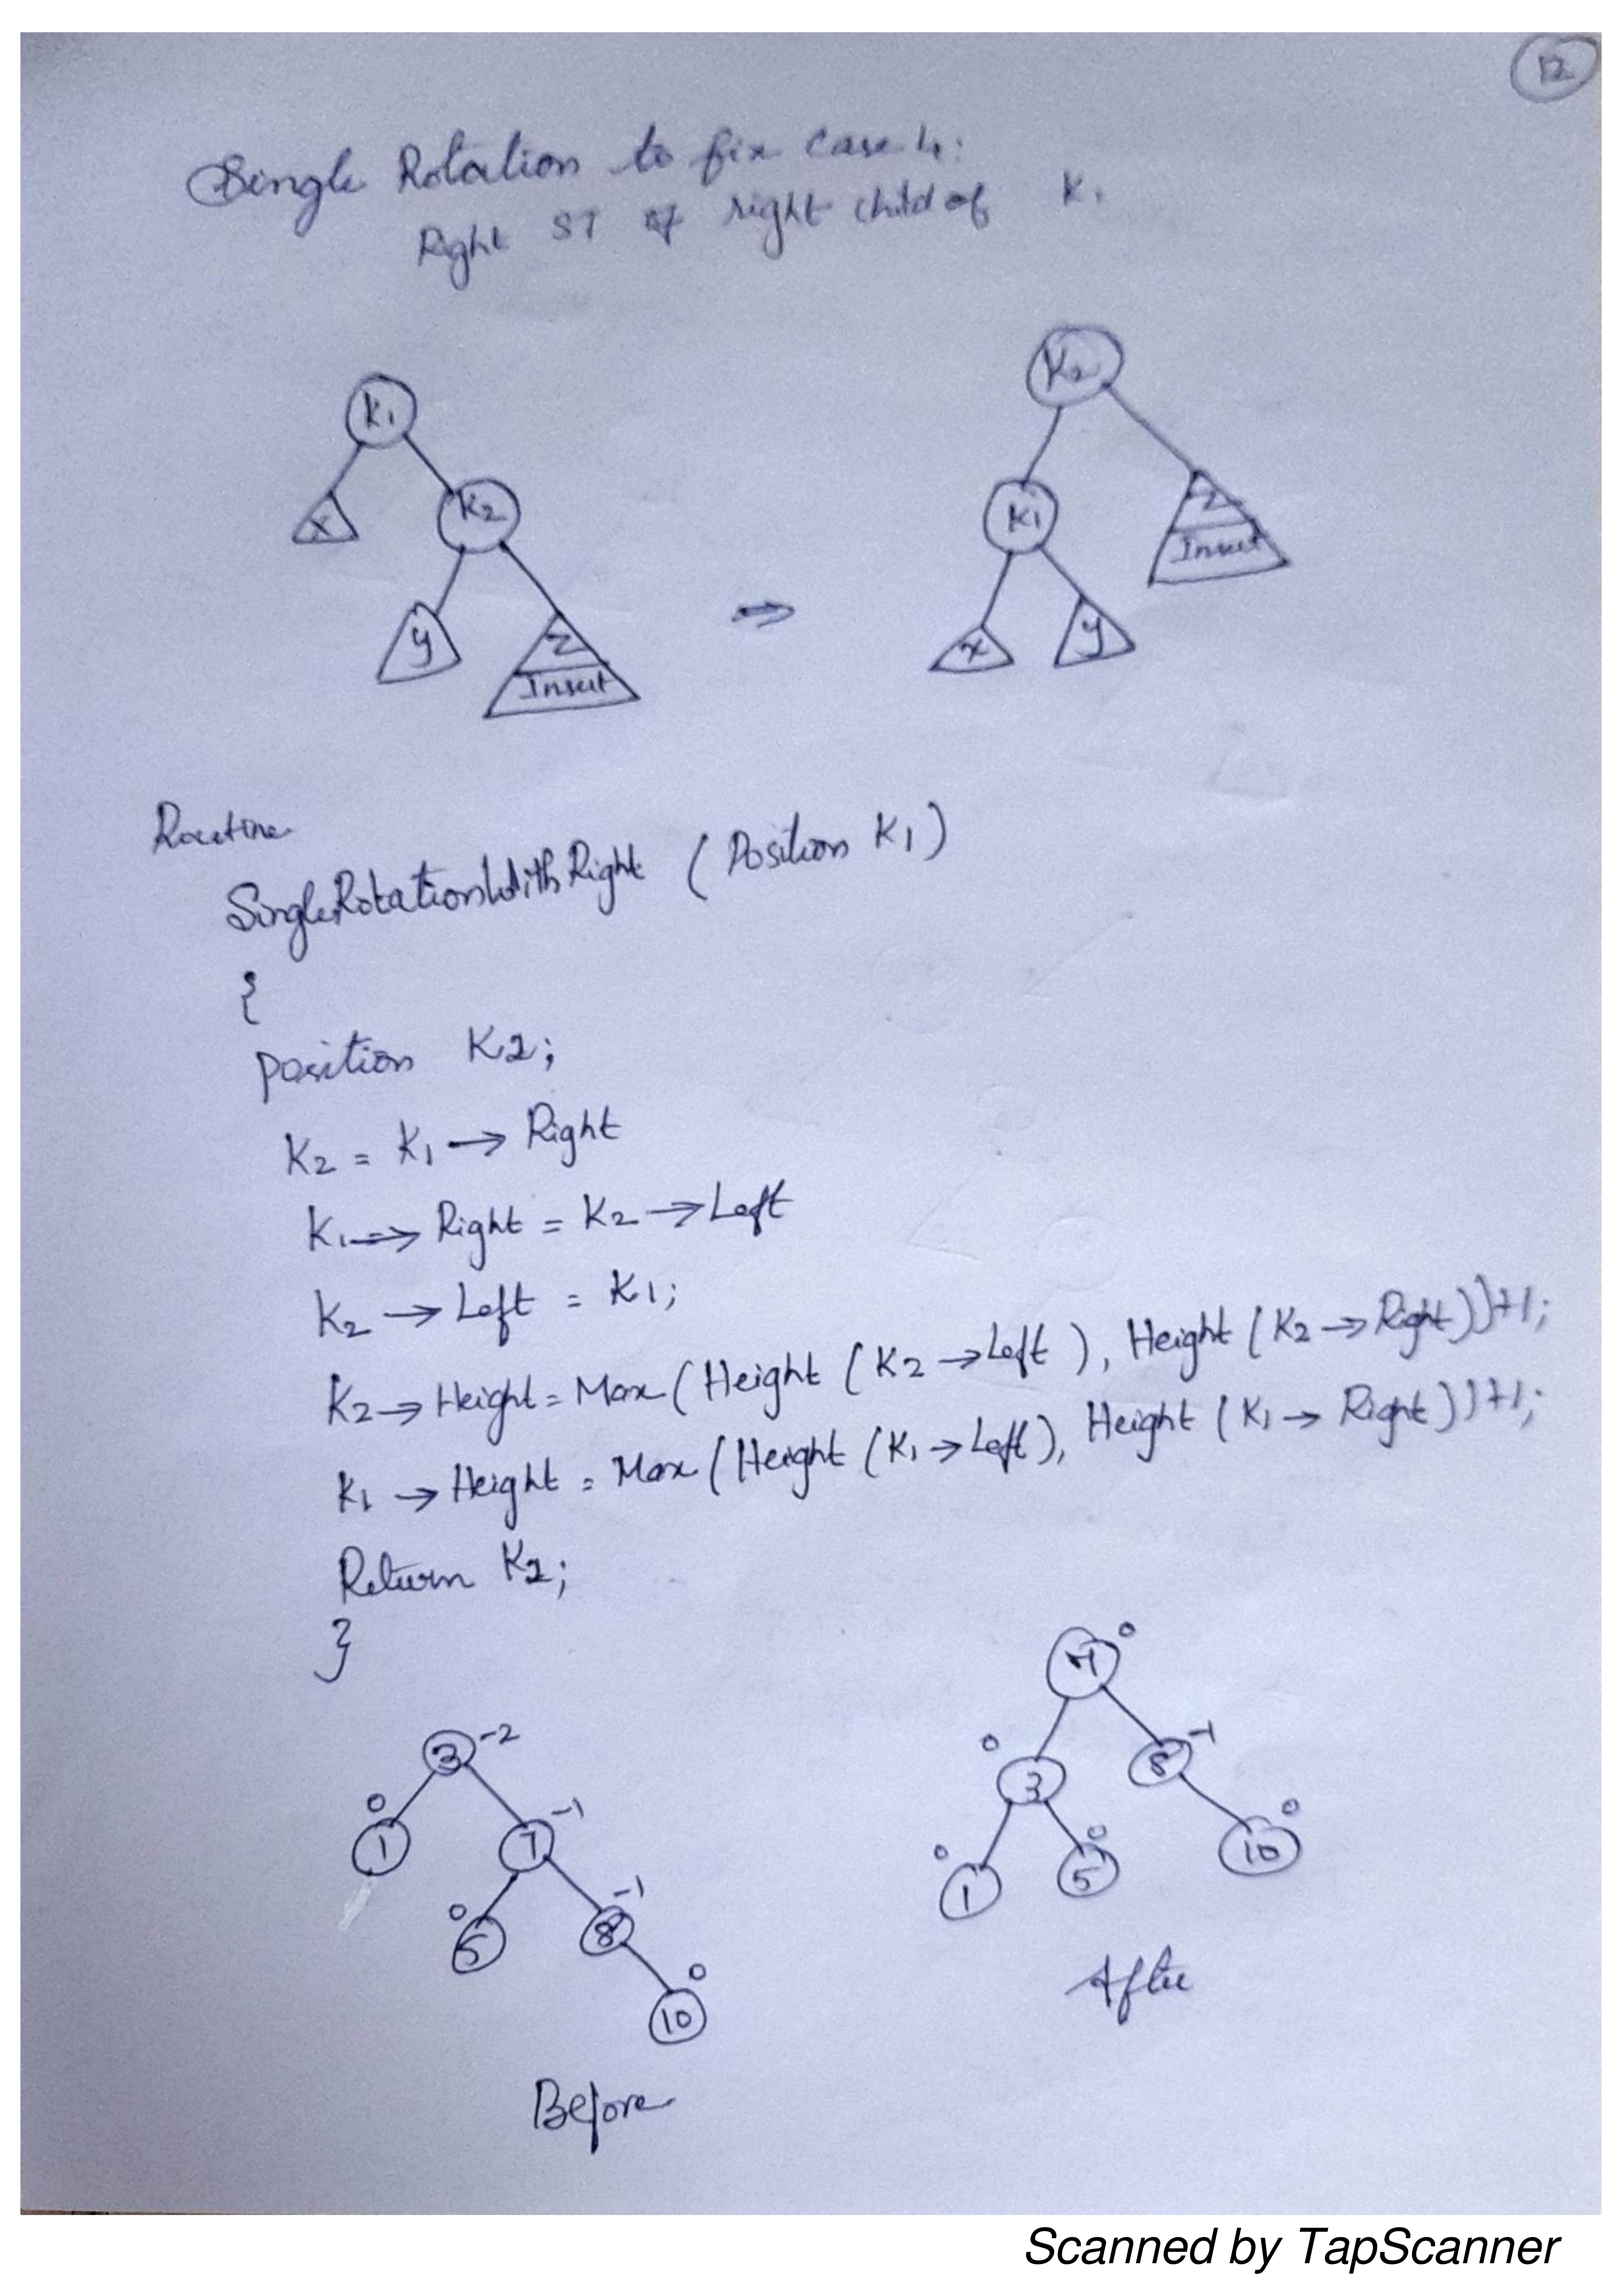 12
Single Rotation to fix case 4:
Right ST of right child of K1
K1
K2
X
K2
K1
Z
Insert
Y
Z
Insert
⇒
X
Y
Routine
SingleRotationWithRight (Position K1)
{
position K2;
K2 = K1 → Right
K1 → Right = K2 → Left
K2 → Left = K1;
K2 → Height = Max (Height (K2 → Left), Height (K2 → Right)) + 1;
K1 → Height = Max (Height (K1 → Left), Height (K1 → Right)) + 1;
Return K2;
}
7 0
3 -2
0 3
8 -1
0 1
7 -1
0 1
5 0
10 0
0 5
8 -1
10 0
After
Before
Scanned by TapScanner